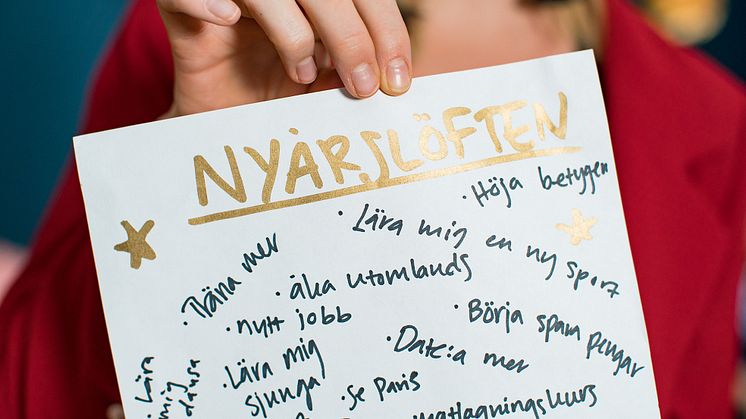 NYÅRSLÖFTEN
· Höja betygen
· Lära mig en ny sport
· Träna mer
· åka utomlands
· nytt jobb
· Börja spara pengar
· Dat:a mer
· Lära mig
sjunga
· Se Paris
· Lära
mig
dansa
matlagningskurs